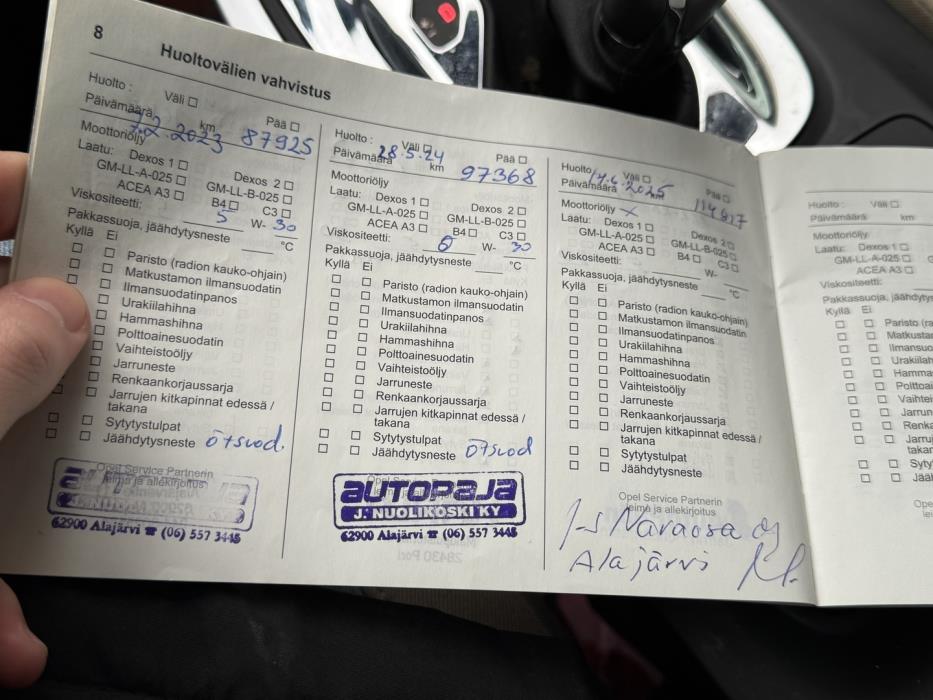 8
Huoltovälien vahvistus
Huolto : Väli Pää
Päivämäärä 7.2.2023 km 87925
Moottoriöljy
Laatu: Dexos 1 Dexos 2
GM-LL-A-025 GM-LL-B-025
ACEA A3 B4 C3
Viskositeetti: 5 W- 30
Pakkassuoja, jäähdytysneste °C
Kyllä Ei
Paristo (radion kauko-ohjain)
Matkustamon ilmansuodatin
Ilmansuodatinpanos
Urakiilahihna
Hammashihna
Polttoainesuodatin
Vaihteistoöljy
Jarruneste
Renkaankorjaussarja
Jarrujen kitkapinnat edessä /
takana
Sytytystulpat
Jäähdytysneste ö+suod.
Opel Service Partnerin
leima ja allekirjoitus
AUTOPAJA
62900 Alajärvi ☎ (06) 557 3445
Huolto : Väli Pää
Päivämäärä 28.5.24 km 97368
Moottoriöljy
Laatu: Dexos 1 Dexos 2
GM-LL-A-025 GM-LL-B-025
ACEA A3 B4 C3
Viskositeetti: 0 W- 30
Pakkassuoja, jäähdytysneste °C
Kyllä Ei
Paristo (radion kauko-ohjain)
Matkustamon ilmansuodatin
Ilmansuodatinpanos
Urakiilahihna
Hammashihna
Polttoainesuodatin
Vaihteistoöljy
Jarruneste
Renkaankorjaussarja
Jarrujen kitkapinnat edessä /
takana
Sytytystulpat
Jäähdytysneste ö+suod
AUTOPAJA
J. NUOLIKOSKI KY
62900 Alajärvi ☎ (06) 557 3445
Huolto : Väli Pää
Päivämäärä 17.6.2025 km 114827
Moottoriöljy x
Laatu: Dexos 1 Dexos 2
GM-LL-A-025 GM-LL-B-025
ACEA A3 B4 C3
Viskositeetti: W-
Pakkassuoja, jäähdytysneste °C
Kyllä Ei
Paristo (radion kauko-ohjain)
Matkustamon ilmansuodatin
Ilmansuodatinpanos
Urakiilahihna
Hammashihna
Polttoainesuodatin
Vaihteistoöljy
Jarruneste
Renkaankorjaussarja
Jarrujen kitkapinnat edessä /
takana
Sytytystulpat
Jäähdytysneste
Opel Service Partnerin
leima ja allekirjoitus
Alajärvi
Huolto : Väli
Päivämäärä km
Moottoriöljy
Laatu: Dexos 1
GM-LL-A-025
ACEA A3
Viskositeetti:
Kyllä Ei